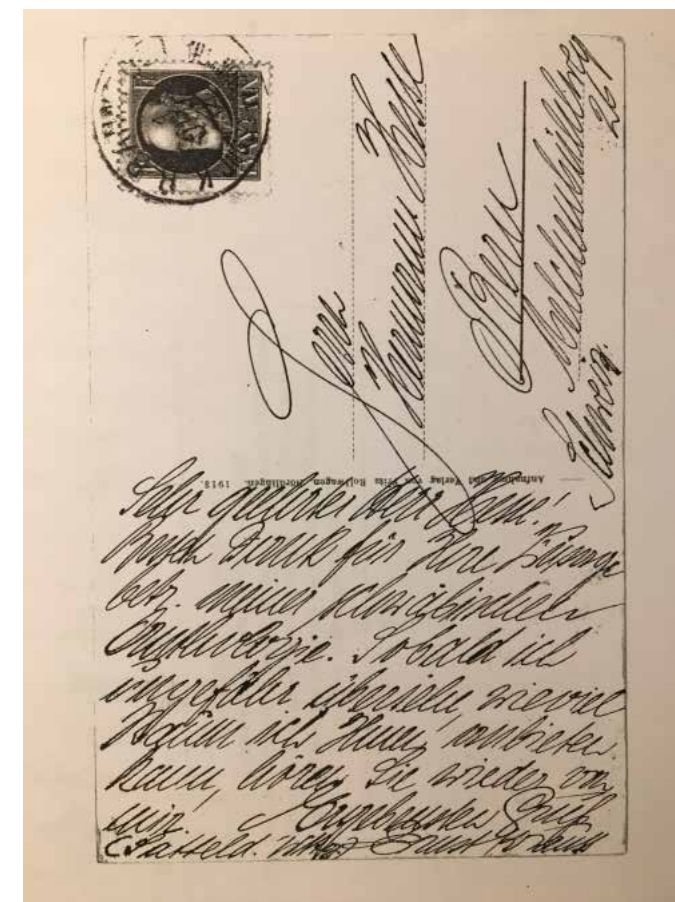 Herrn
Hermann Hesse
Bern
Melchenbühlweg
261
Schweiz.
Aufnahme und Verlag von Fritz Nördlingen. 1913.
Sehr geehrter Herr Hesse!
Dank für Ihre Zusage
betr. meiner schwäbischen
Anthologie. Sobald ich
ungefähr übersehe, wieviel
Raum ich Ihnen anbieten
kann, hören Sie wieder von
mir. Ergebensten Gruß